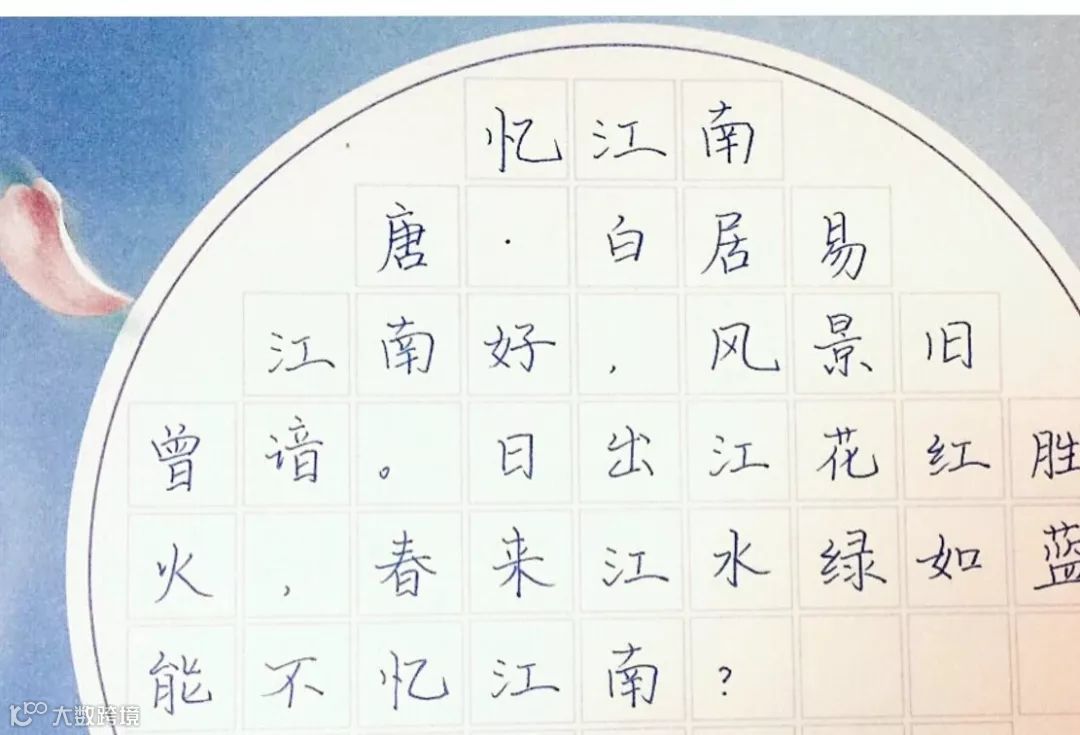 忆江南
唐·白居易
江南好，风景旧
曾谙。日出江花红胜
火，春来江水绿如蓝
能不忆江南？
大数跨境